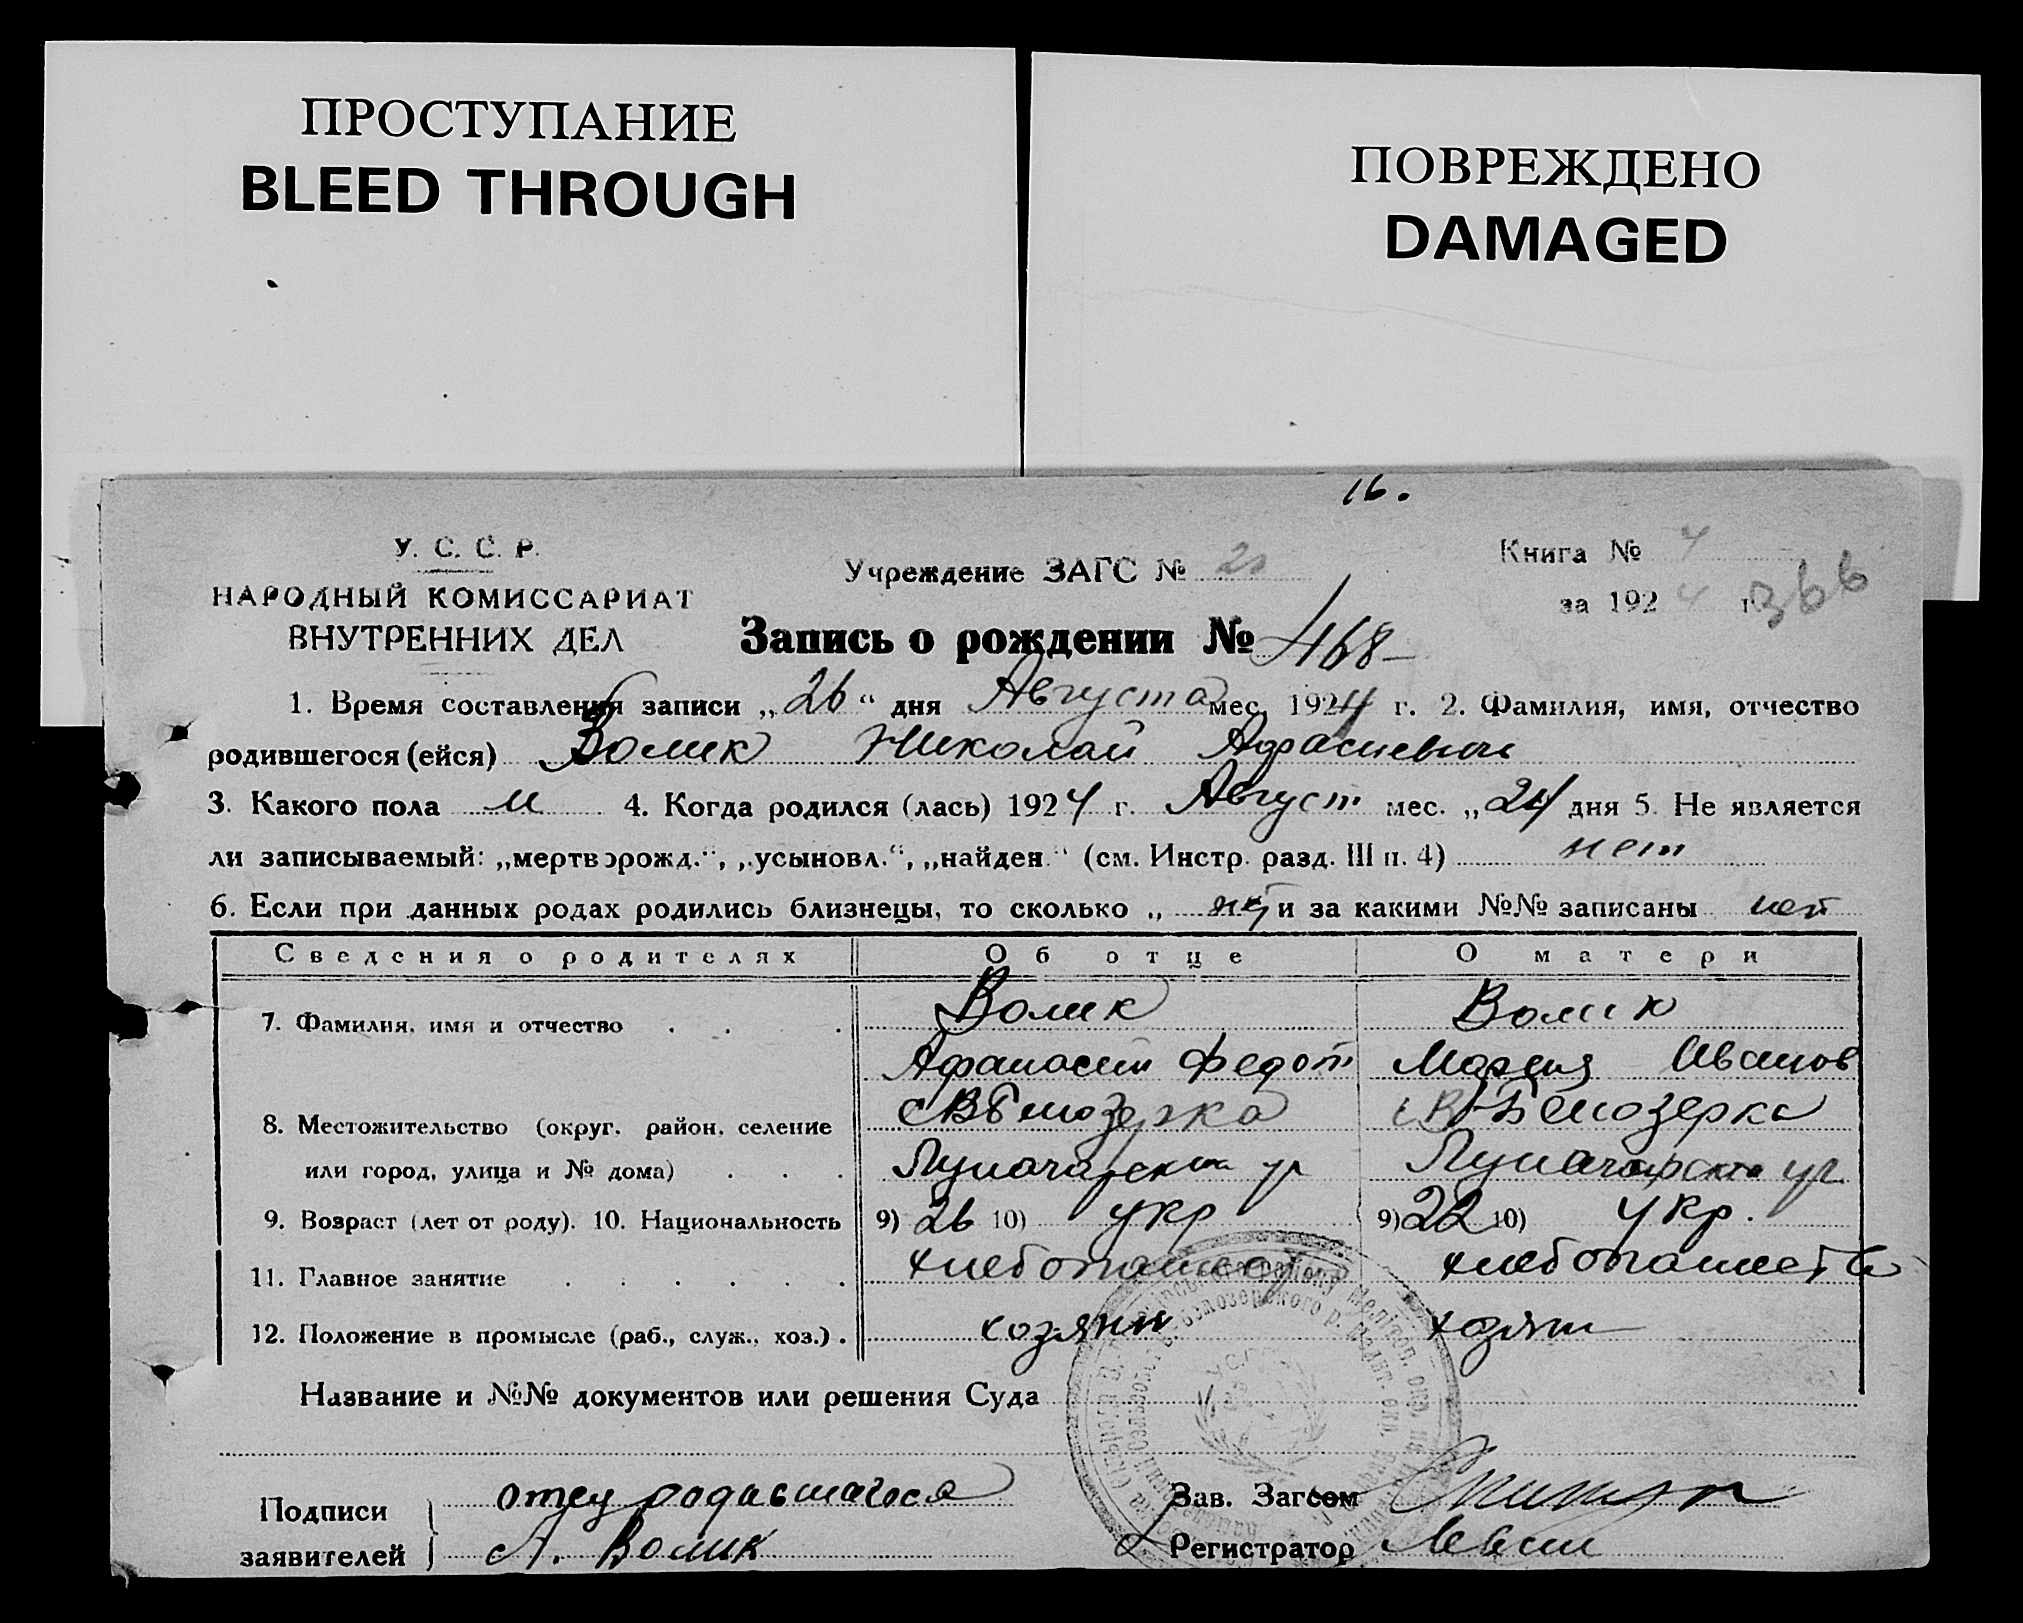 ПРОСТУПАНИЕ
BLEED THROUGH
ПОВРЕЖДЕНО
DAMAGED
16.
У. С. С. Р.
НАРОДНЫЙ КОМИССАРИАТ
ВНУТРЕННИХ ДЕЛ
Учреждение ЗАГС №
Книга № 4
за 1924 г. 366
Запись о рождении № 468
1. Время составления записи „26“ дня Августа мес. 1924 г. 2. Фамилия, имя, отчество
родившегося (ейся) Волик Николай Афасиевич
3. Какого пола м 4. Когда родился (лась) 1924 г. Август мес. „24 дня 5. Не является
ли записываемый: „мертворожд.“, „усыновл.“, „найден.“ (см. Инстр. разд. III п. 4) нет
6. Если при данных родах родились близнецы, то сколько „ нет и за какими №№ записаны нет
Сведения о родителях Об отце О матери
7. Фамилия, имя и отчество Волик Волик
Афанасий Федот Мария Иванов
8. Местожительство (округ, район, селение СВ Белозерка СВ Белозерка
или город, улица и № дома) Луначарская ул Луначарская ул
9. Возраст (лет от роду). 10. Национальность 9) 26 10) укр 9) 22 10) укр.
11. Главное занятие хлебопашест хлебопашеств
12. Положение в промысле (раб., служ., хоз.) хозяин хозяи
Название и №№ документов или решения Суда
Подписи заявителей
отец родавшагося
А. Волик
Зав. Загсом
Регистратор